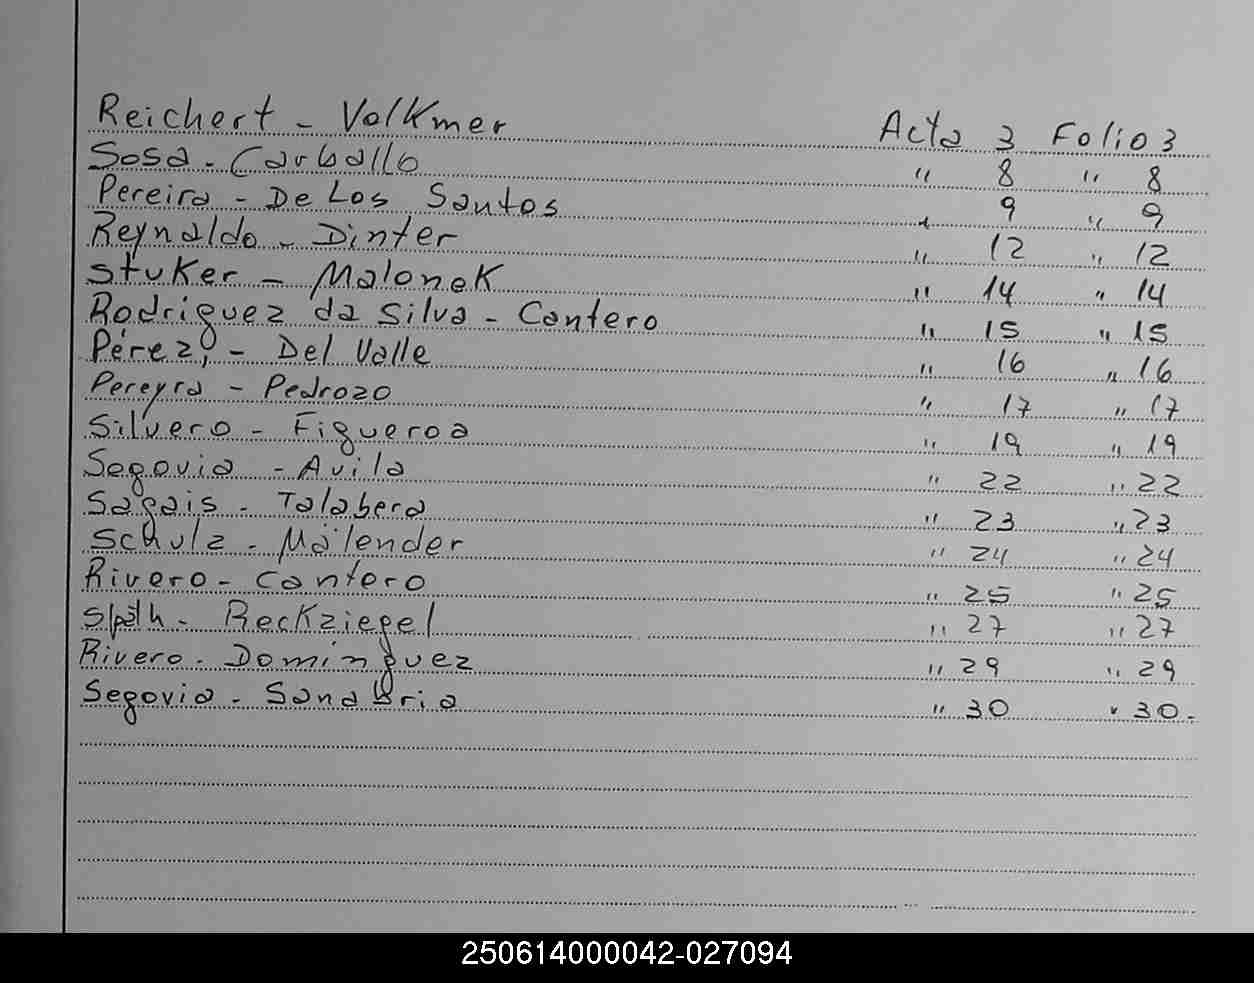 Reichert - Volkmer Acta 3 Folio 3
Sosa - Carballo " 8 " 8
Pereira - De Los Santos " 9 " 9
Reynaldo - Dinter " 12 " 12
Stuker - Malonek " 14 " 14
Rodriguez da Silva - Cantero " 15 " 15
Pérez, - Del Valle " 16 " 16
Pereyra - Pedrozo " 17 " 17
Silvero - Figueroa " 19 " 19
Segovia - Avila " 22 " 22
Sagais - Talabera " 23 " 23
Schulz - Mälender " 24 " 24
Rivero - Cantero " 25 " 25
Späth - Reckziegel " 27 " 27
Rivero - Dominguez " 29 " 29
Segovia - Sanabria " 30 " 30.
250614000042-027094